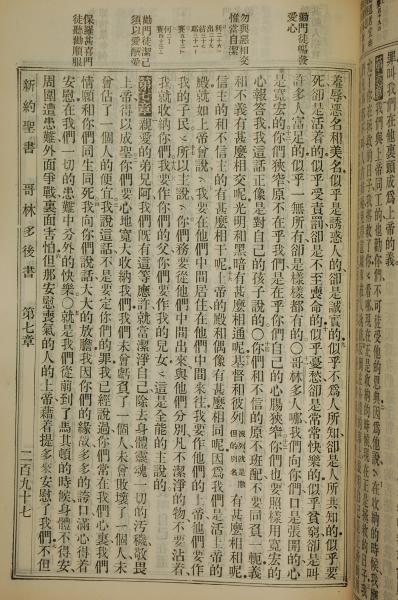 罪叫我們在他裏頭成爲上帝的義
我們與上帝同工的也勸你們不可徒受他的恩典因爲他說在收納的時候我應
勸門徒暢發愛心
勿與惡相交惟當自潔
勸門徒潔己須以愛酬愛
保羅甚喜門徒聽勸順服
羞辱惡名和美名似乎是誘惑人的卻是誠實的似乎不爲人所知卻是人所共知的似乎要
死卻是活着的似乎受責罰卻是不至喪命的似乎憂愁卻是常常快樂的似乎貧窮卻是叫
許多人富足的似乎一無所有卻是樣樣都有的○哥林多人哪我們向你們口是張開的心
是寬宏的你們狹窄原不在乎我們是在乎你們自己的心腸狹窄你們也要照樣用寬宏的
心報答我我這話正像是對自己的孩子說的○你們和不信的原不班配不要同負一軛義
和不義有甚麼相交呢光明和黑暗有甚麼相通呢基督和彼列彼列是撒但的別名有甚麼相和呢
信主的和不信主的有甚麼相干呢上帝的殿和偶像有甚麼相同呢因爲我們是活上帝的
殿就如上帝曾說我要在他們中間居住在他們中間來往我要作他們的上帝他們要作
我的子民所以主說你們務要從他們中間出來與他們分別凡不潔淨的物不要沾着
我就收納你們我要作你們的父你們要作我的兒女這是全能的主說的
第七章親愛的弟兄阿我們旣有這等應許就當潔淨自己除去身體靈魂一切的汚穢敬畏
上帝得以成聖你們要心地寬大收納我們我們未曾虧負了一個人未曾敗壞了一個人未
曾佔了一個人的便宜我說這話不是要定你們的罪我已經說過你們常在我們心裏我們
情願和你們同生同死我向你們說話大大的放膽我因你們的緣故多多的誇口滿心得着
安慰在我們一切的患難中分外的快樂○就是我們從前到了馬其頓的時候身體不得安
周圍遭患難外面爭戰裏面害怕但那安慰喪氣的人的上帝藉着提多來安慰了我們不但
新約聖書 哥林多後書 第七章 二百九十七